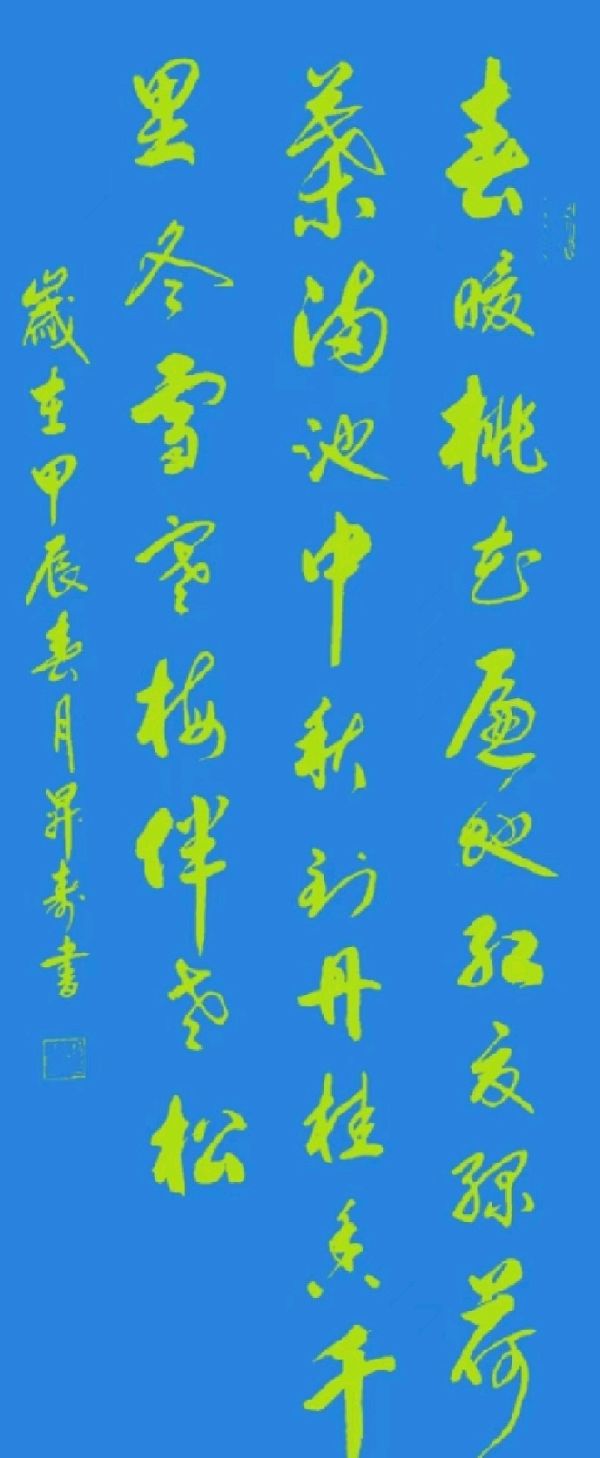 春暖桃花遍地红夏绿荷
葉满池中秋到丹桂香千
里冬雪寒梅伴老松
歲在甲辰春月昇寿書